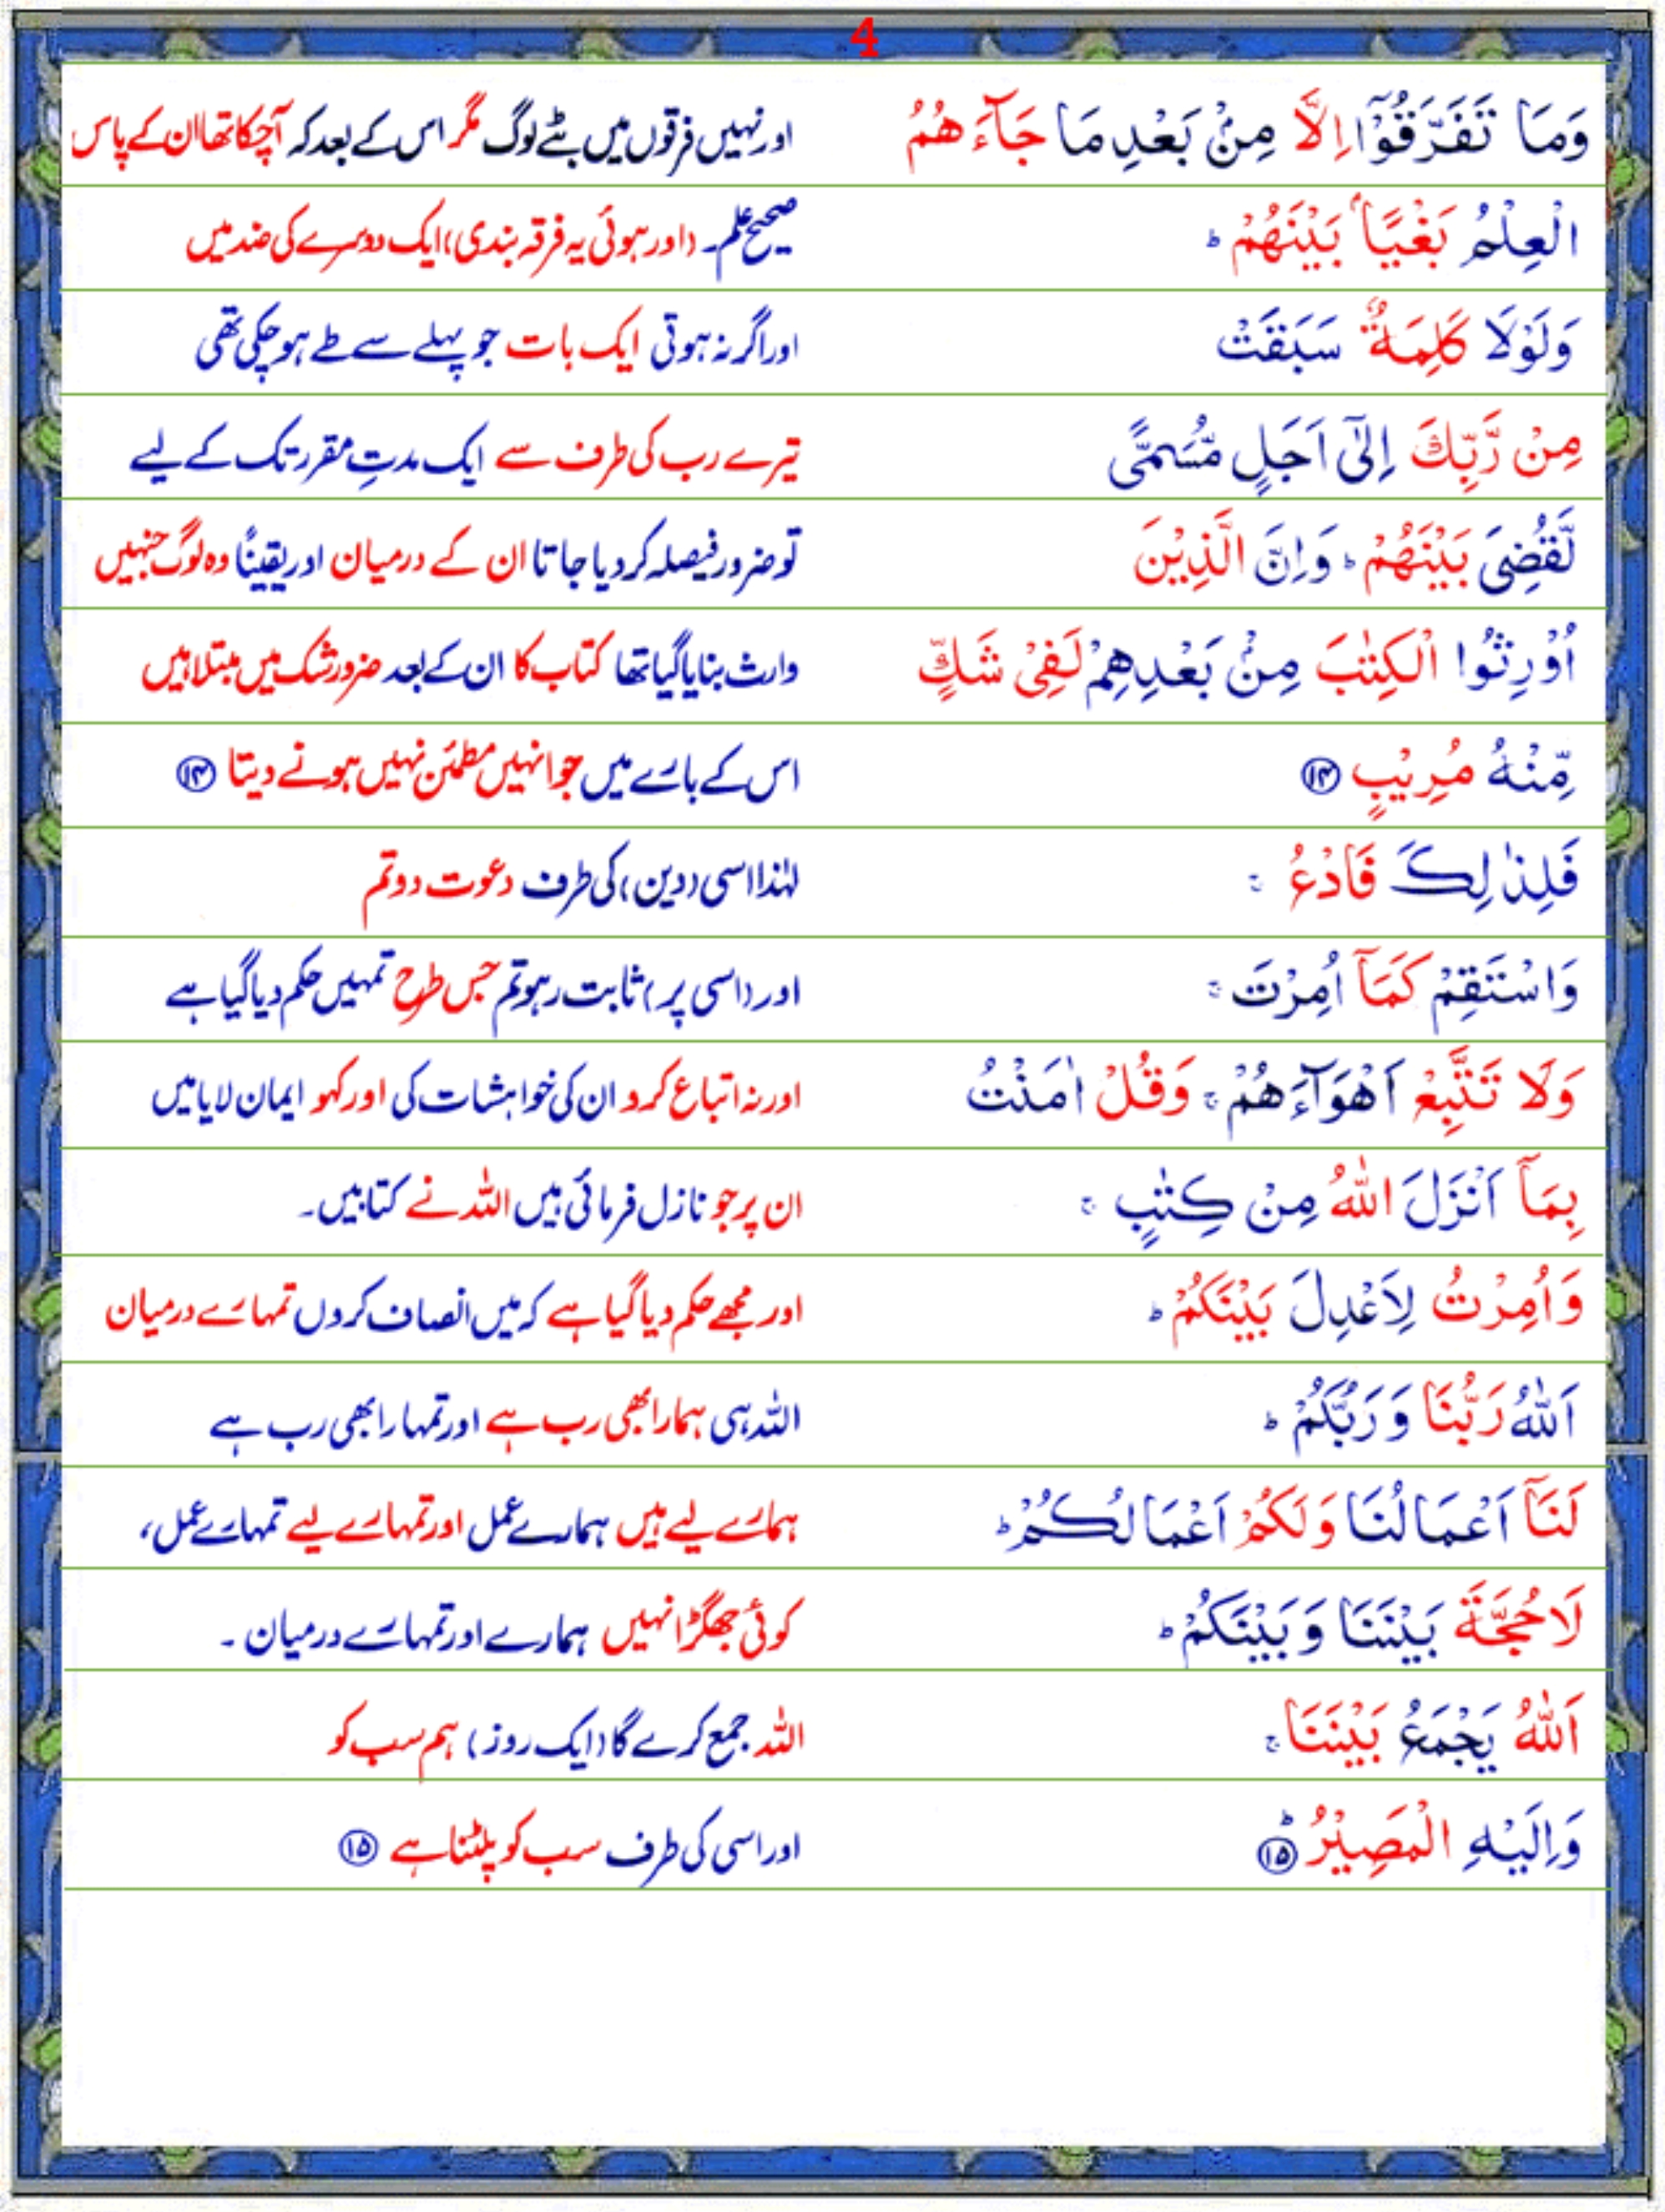 4
وَمَا تَفَرَّقُوْۤا اِلَّا مِنْۢ بَعْدِ مَا جَآءَهُمُ
اورنہیں فرقوں میں بٹے لوگ مگر اس کے بعد کہ آچکا تھا ان کے پاس
الْعِلْمُ بَغْيًاۢ بَيْنَهُمْ ؕ
صحیح علم۔ (اور ہوئی یہ فرقہ بندی) ایک دوسرے کی ضد میں
وَلَوْلَا كَلِمَةٌ سَبَقَتْ
اور اگر نہ ہوتی ایک بات جو پہلے سے طے ہو چکی تھی
مِنْ رَّبِّكَ اِلٰۤى اَجَلٍ مُّسَمًّى
تیرے رب کی طرف سے ایک مدتِ مقرر تک کے لیے
لَّقُضِىَ بَيْنَهُمْ ؕ وَاِنَّ الَّذِيْنَ
تو ضرور فیصلہ کر دیا جاتا ان کے درمیان اور یقیناً وہ لوگ جنہیں
اُوْرِثُوا الْكِتٰبَ مِنْۢ بَعْدِهِمْ لَفِىْ شَكٍّ
وارث بنایا گیا تھا کتاب کا ان کے بعد ضرور شک میں مبتلا ہیں
مِّنْهُ مُرِيْبٍ ۱۴
اس کے بارے میں جو انہیں مطمئن نہیں ہونے دیتا ۱۴
فَلِذٰلِكَ فَادْعُ ۚ
لہٰذا اسی (دین) کی طرف دعوت دو تم
وَاسْتَقِمْ كَمَاۤ اُمِرْتَ ۚ
اور (اسی پر) ثابت رہو تم جس طرح تمہیں حکم دیا گیا ہے
وَلَا تَتَّبِعْ اَهْوَآءَهُمْ ۚ وَقُلْ اٰمَنْتُ
اور نہ اتباع کرو ان کی خواہشات کی اور کہو ایمان لایا میں
بِمَاۤ اَنْزَلَ اللّٰهُ مِنْ كِتٰبٍ ۚ
ان پر جو نازل فرمائی ہیں اللہ نے کتابیں۔
وَاُمِرْتُ لِاَعْدِلَ بَيْنَكُمْ ؕ
اور مجھے حکم دیا گیا ہے کہ میں انصاف کروں تمہارے درمیان
اَللّٰهُ رَبُّنَا وَرَبُّكُمْ ؕ
اللہ ہی ہمارا بھی رب ہے اور تمہارا بھی رب ہے
لَنَاۤ اَعْمَالُنَا وَلَكُمْ اَعْمَالُكُمْ ؕ
ہمارے لیے ہیں ہمارے عمل اور تمہارے لیے تمہارے عمل،
لَا حُجَّةَ بَيْنَنَا وَبَيْنَكُمْ ؕ
کوئی جھگڑا نہیں ہمارے اور تمہارے درمیان ۔
اَللّٰهُ يَجْمَعُ بَيْنَنَا ۚ
اللہ جمع کرے گا (ایک روز) ہم سب کو
وَاِلَيْهِ الْمَصِيْرُ ؕ ۱۵
اور اسی کی طرف سب کو پلٹنا ہے ۱۵